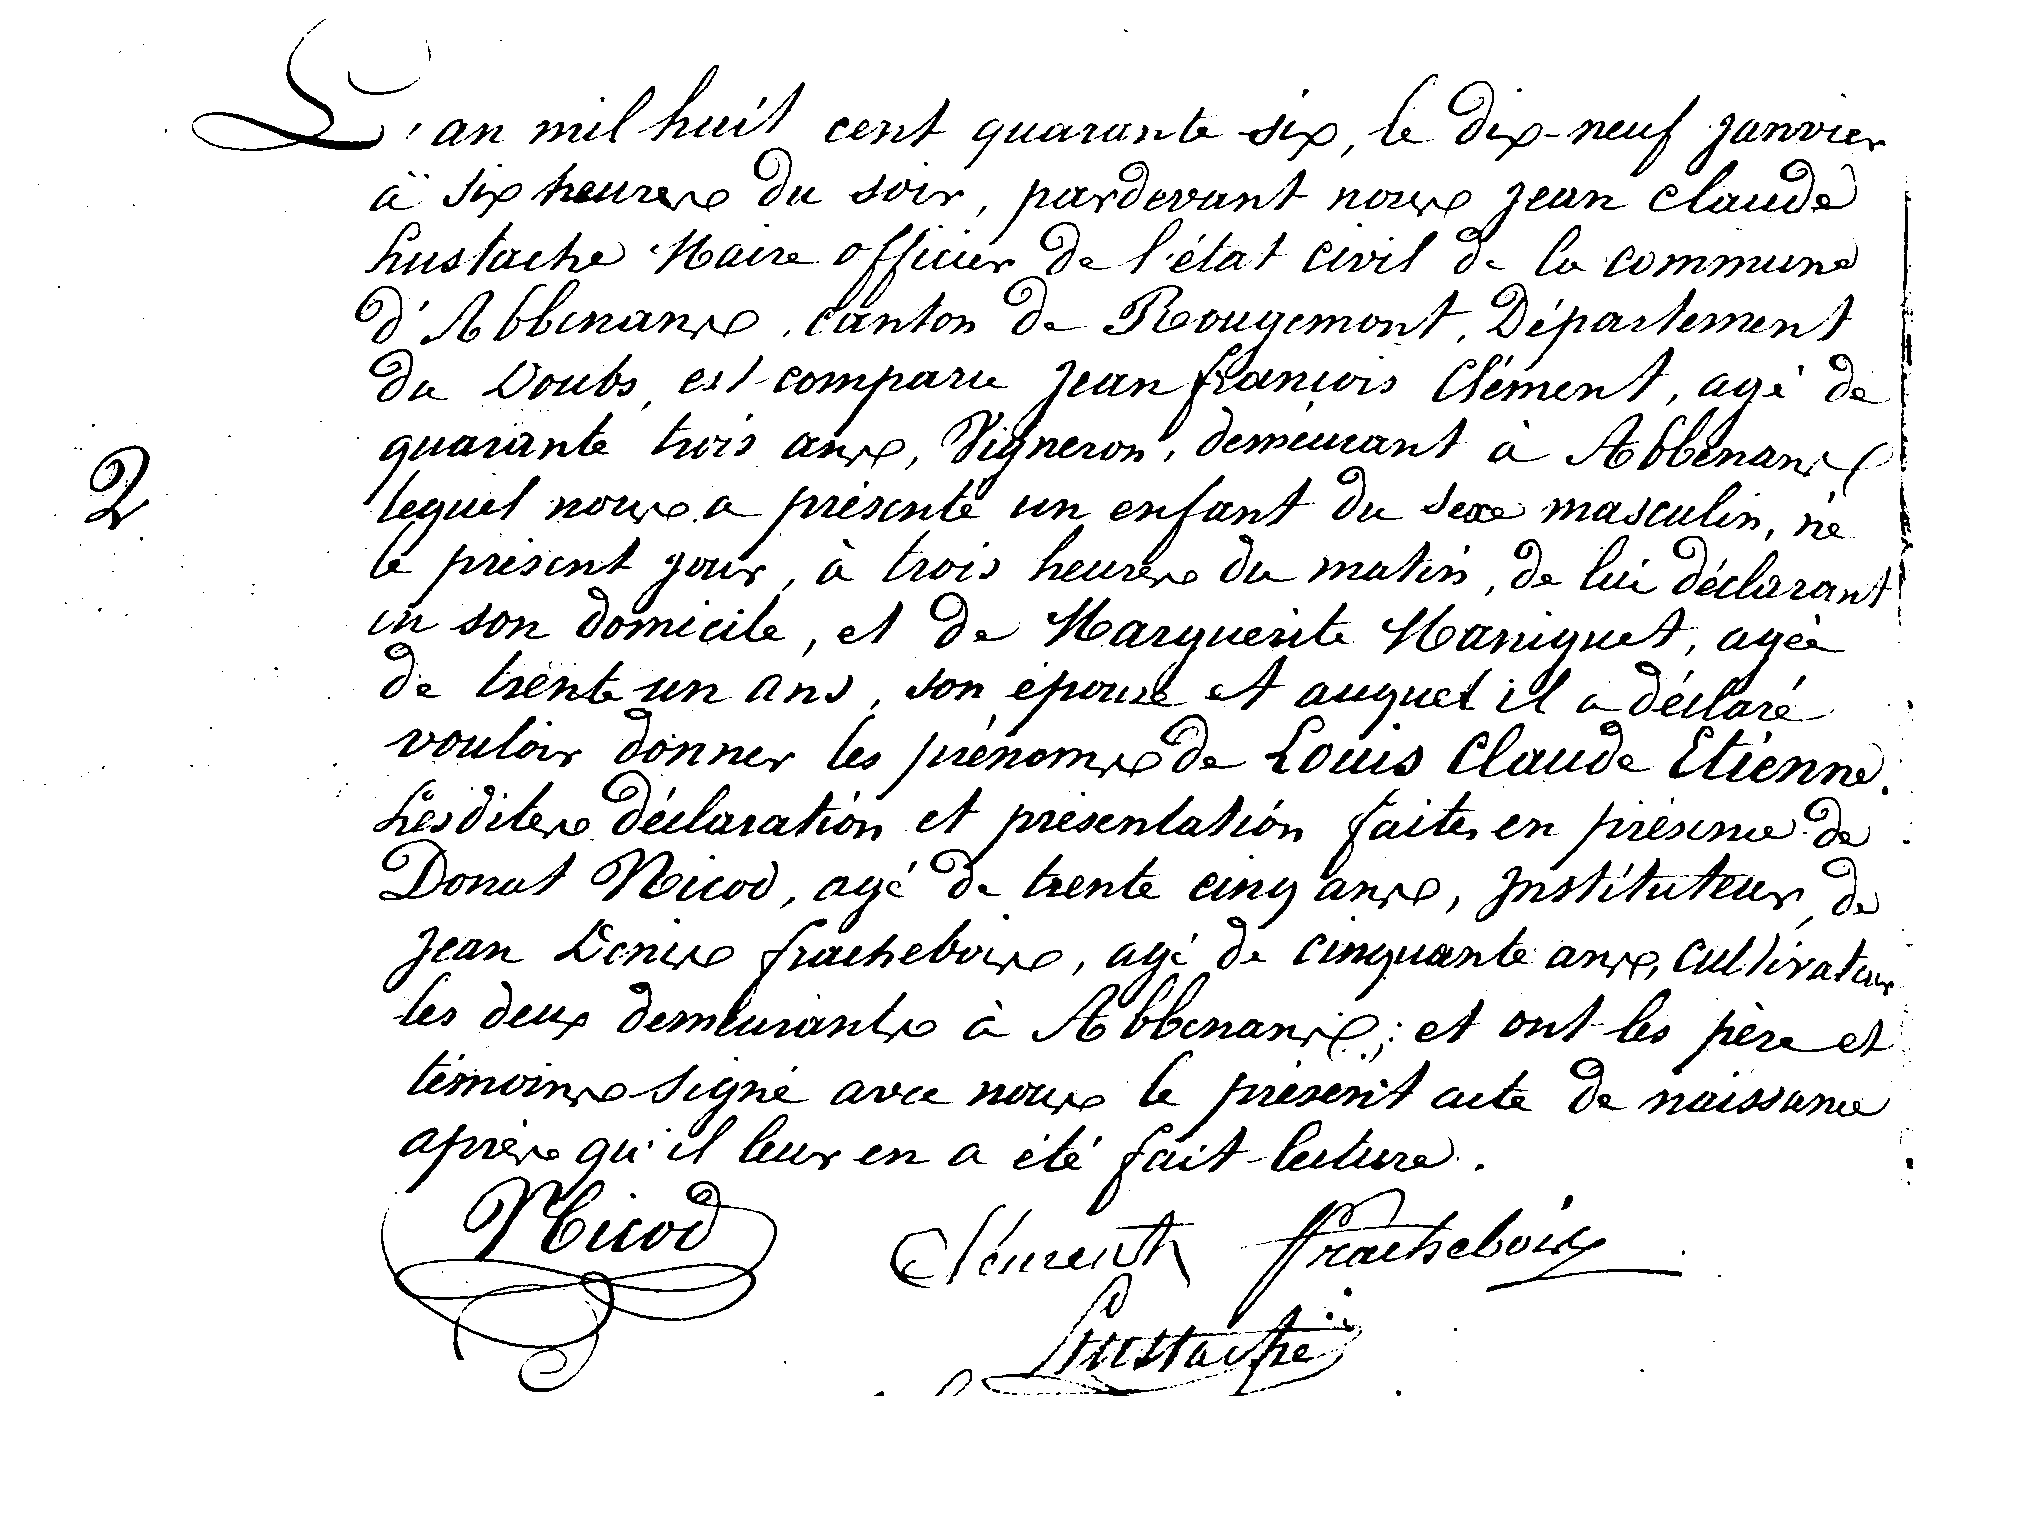 L'an mil huit cent quarante six, le dix-neuf janvier
à six heures du soir, pardevant nous jean claude
Eustache Maire officier de l'état civil de la commune
d'Abbenans, canton de Rougemont, Département
du Doubs, est comparu jean françois Clément, agé de
quarante trois ans, Vigneron, demeurant à Abbenans
lequel nous a présenté un enfant du sexe masculin, né
le présent jour, à trois heures du matin, de lui déclarant
en son domicile, et de Marguerite Maniguet, agée
de trente un ans, son épouse et auquel il a déclaré
vouloir donner les prénoms de Louis Claude Etienne.
Lesdites déclaration et présentation faites en présence de
2
Donat Nicod, agé de trente cinq ans, instituteur, de
jean Denis fracheboix, agé de cinquante ans, cultivateur
les deux demeurants à Abbenans; et ont les père et
témoins signé avec nous le présent acte de naissance
après qu'il leur en a été fait lecture.
Nicod Clément Fracheboix
Eustache